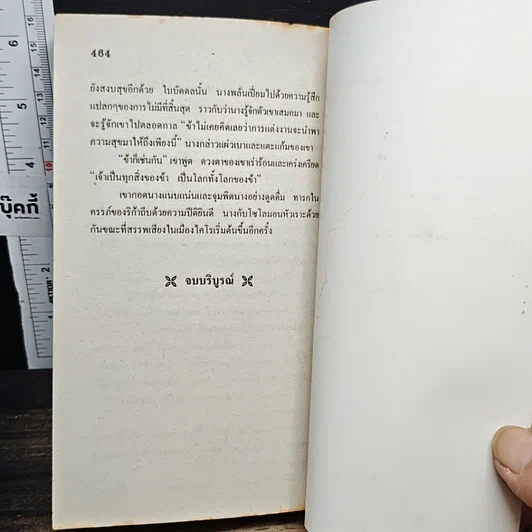 464
ยังสงบสุขอีกด้วย ในบัดดลนั้น นางพลันเปี่ยมไปด้วยความรู้สึก
แปลกๆของการไม่มีที่สิ้นสุด ราวกับว่านางรู้จักตัวเขาเสมอมา และ
จะรู้จักเขาไปตลอดกาล “ข้าไม่เคยคิดเลยว่าการแต่งงานจะนำพา
ความสุขมาให้ถึงเพียงนี้” นางกล่าวแผ่วเบาและแตะแก้มของเขา
“ข้าก็เช่นกัน” เขาพูด ดวงตาของเขาเร่าร้อนและเคร่งเครียด
“เจ้าเป็นทุกสิ่งของข้า เป็นโลกทั้งโลกของข้า”
เขากอดนางแนบแน่นและจุมพิตนางอย่างดูดดื่ม ทารกใน
ครรภ์ของริก้าถีบด้วยความปีติยินดี นางกับโซโลมอนหัวเราะด้วย
กันขณะที่สรรพเสียงในเมืองไคโรเริ่มต้นขึ้นอีกครั้ง
จบบริบูรณ์
บุ๊คกี้